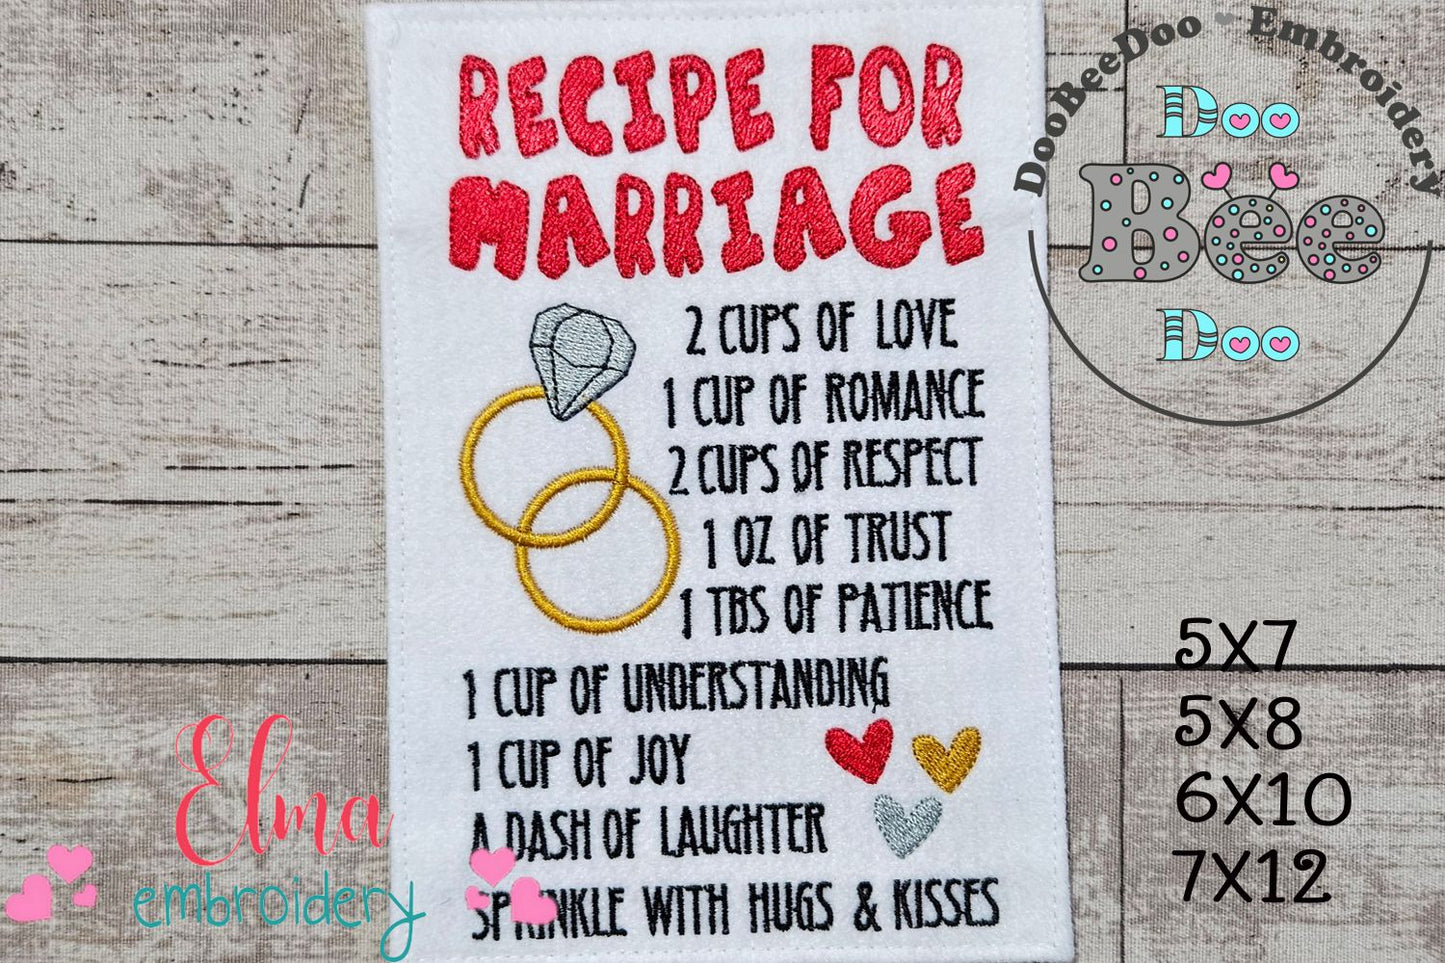 RECIPE FOR
MARRIAGE
2 CUPS OF LOVE
1 CUP OF ROMANCE
2 CUPS OF RESPECT
1 OZ OF TRUST
1 TBS OF PATIENCE
1 CUP OF UNDERSTANDING
1 CUP OF JOY
A DASH OF LAUGHTER
SPRINKLE WITH HUGS & KISSES
DooBeeDoo Embroidery
Doo
Bee
Doo
5X7
5X8
6X10
7X12
Elma
embroidery